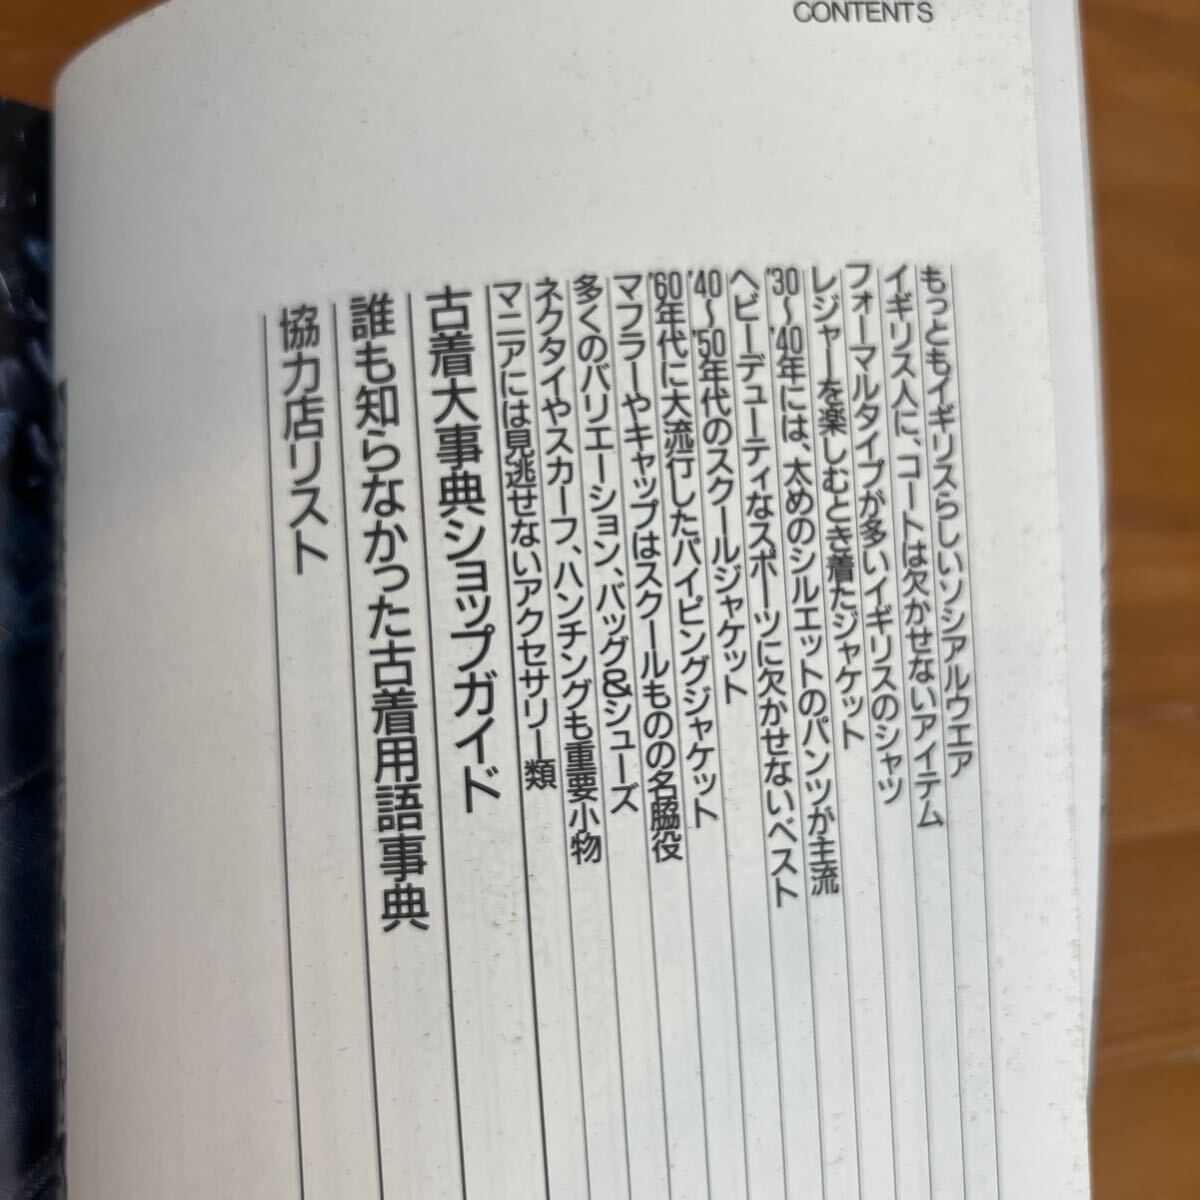 CONTENTS
もっともイギリスらしいソシアルウエア
イギリス人に、コートは欠かせないアイテム
フォーマルタイプが多いイギリスのシャツ
レジャーを楽しむとき着たジャケット
'30〜'40年には、太めのシルエットのパンツが主流
ヘビーデューティなスポーツに欠かせないベスト
'40〜'50年代のスクールジャケット
'60年代に大流行したパイピングジャケット
マフラーやキャップはスクールものの名脇役
多くのバリエーション、バッグ&シューズ
ネクタイやスカーフ、ハンチングも重要小物
マニアには見逃せないアクセサリー類
古着大事典ショップガイド
誰も知らなかった古着用語事典
協力店リスト